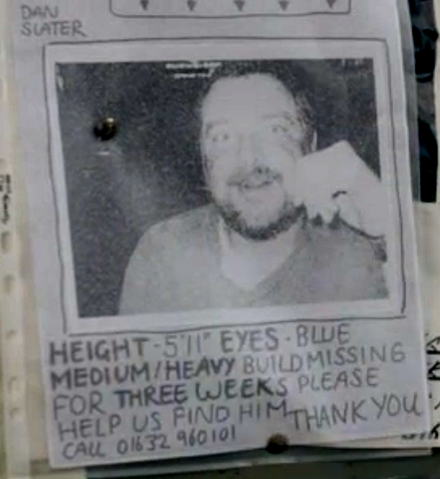 DAN
SLATER
HEIGHT - 5'11" EYES - BLUE
MEDIUM/HEAVY BUILD MISSING
FOR THREE WEEKS PLEASE
HELP US FIND HIM THANK YOU
CALL 01632 960101